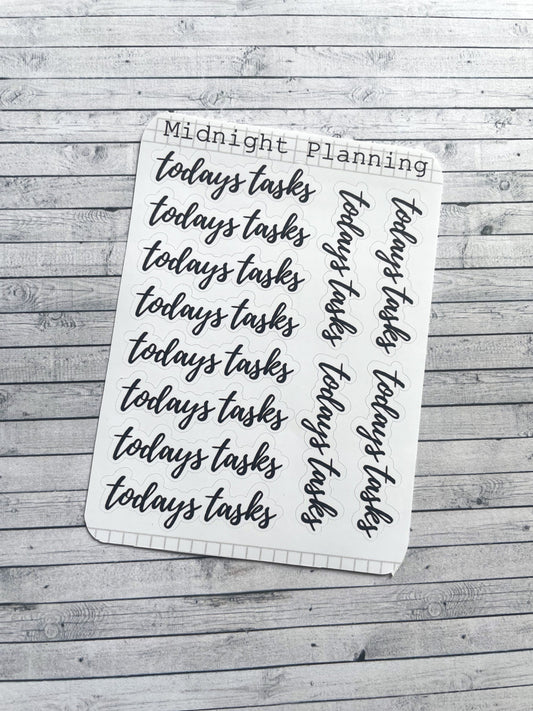 Midnight Planning
todays tasks
todays tasks
todays tasks
todays tasks
todays tasks
todays tasks
todays tasks
todays tasks
todays tasks
todays tasks
todays tasks
todays tasks